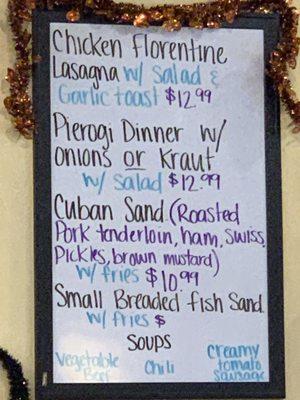 Chicken Florentine
Lasagna w/ Salad &
Garlic toast $12.99
Pierogi Dinner w/
onions or Kraut
w/ salad $12.99
Cuban Sand. (Roasted
Pork tenderloin, ham, swiss,
Pickles, brown mustard)
w/ fries $10.99
Small Breaded fish Sand.
w/ fries $
Soups
Vegetable Beef
Chili
Creamy tomato sausage